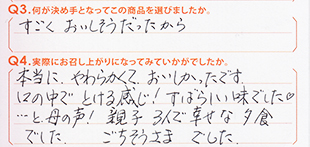 Q3.何が決め手となってこの商品を選びましたか。
すごく おいしそうだったから
Q4.実際にお召し上がりになってみていかがでしたか。
本当に、やわらかくて、おいしかったです。
口の中で とける感じ！すばらしい味でした♡
…と母の声！ 親子 3人で幸せな夕食
でした。 ごちそうさま でした。